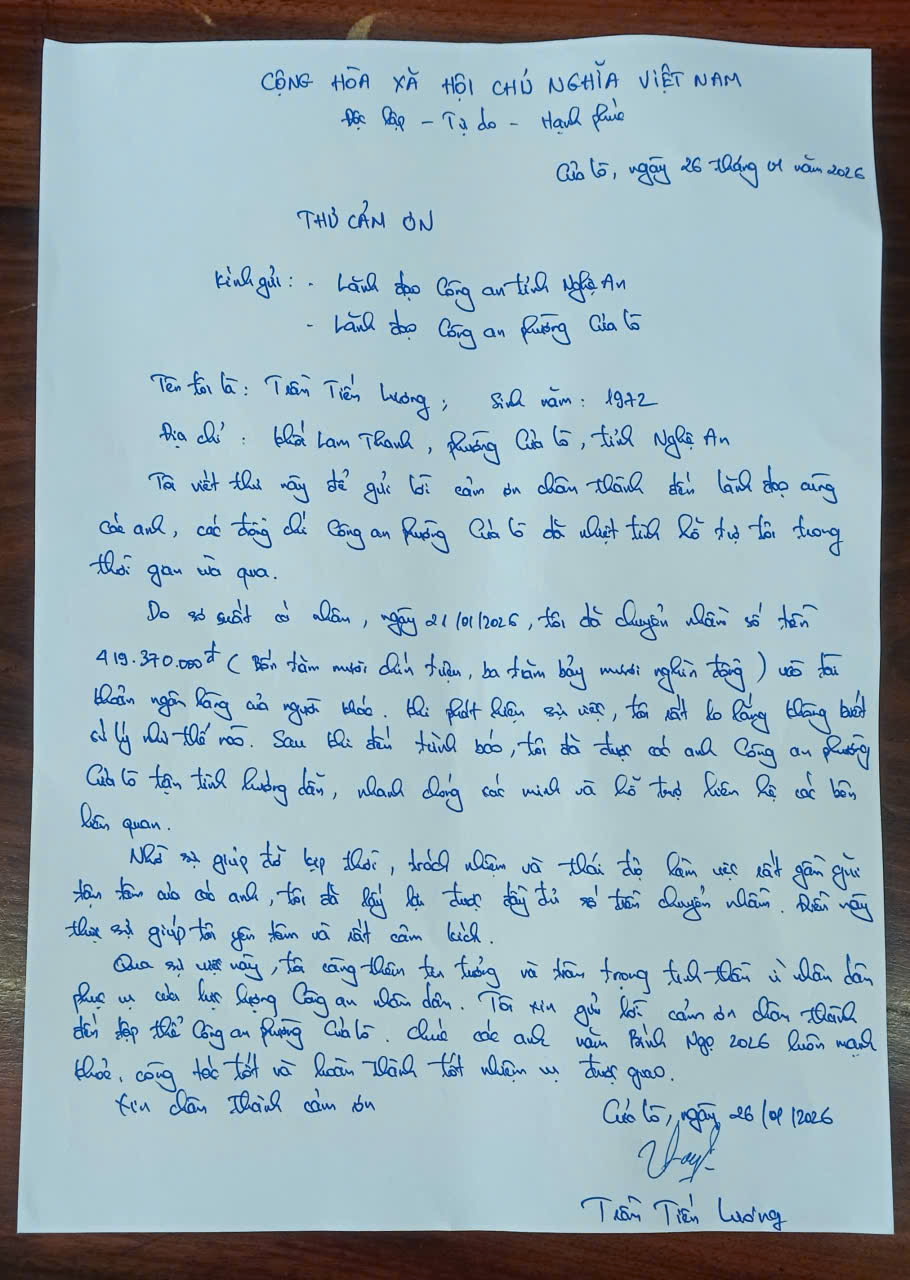 CỘNG HÒA XÃ HỘI CHỦ NGHĨA VIỆT NAM
Độc lập - Tự do - Hạnh phúc
Cửa Lò, ngày 26 tháng 01 năm 2026
THƯ CẢM ƠN
Kính gửi: - Lãnh đạo Công an tỉnh Nghệ An
- Lãnh đạo Công an phường Cửa Lò
Tên tôi là: Trần Tiến Lương; Sinh năm: 1972
Địa chỉ: khối Lam Thanh, phường Cửa Lò, tỉnh Nghệ An
Tôi viết thư này để gửi lời cảm ơn chân thành đến lãnh đạo cùng
các anh, các đồng chí Công an phường Cửa Lò đã nhiệt tình hỗ trợ tôi trong
thời gian vừa qua.
Do sơ suất cá nhân, ngày 21/01/2026, tôi đã chuyển nhầm số tiền
419.370.000đ (Bốn trăm mười chín triệu, ba trăm bảy mươi nghìn đồng) vào tài
khoản ngân hàng của người khác. Khi phát hiện sự việc, tôi rất lo lắng không biết
xử lý như thế nào. Sau khi đến trình báo, tôi đã được các anh Công an phường
Cửa Lò tận tình hướng dẫn, nhanh chóng xác minh và hỗ trợ liên hệ các bên
liên quan.
Nhờ sự giúp đỡ kịp thời, trách nhiệm và thái độ làm việc rất gần gũi
tận tâm của các anh, tôi đã lấy lại được đầy đủ số tiền chuyển nhầm. Điều này
thực sự giúp tôi yên tâm và rất cảm kích.
Qua sự việc này, tôi càng thêm tin tưởng và trân trọng tinh thần vì nhân dân
phục vụ của lực lượng Công an nhân dân. Tôi xin gửi lời cảm ơn chân thành
đến tập thể Công an phường Cửa Lò. Chúc các anh năm Bính Ngọ 2026 luôn mạnh
khỏe, công tác tốt và hoàn thành tốt nhiệm vụ được giao.
Xin chân thành cảm ơn
Cửa Lò, ngày 26/01/2026
Trần Tiến Lương